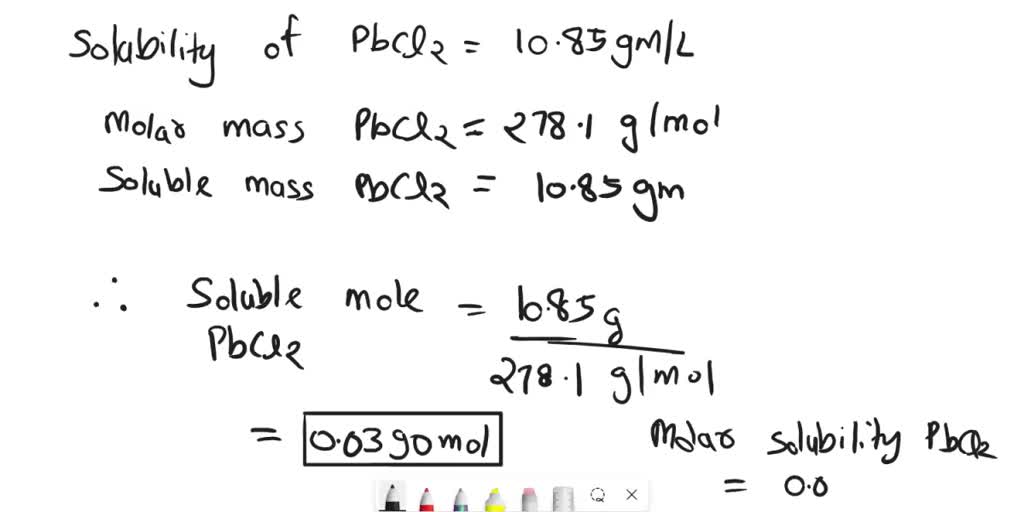 Solubility of PbCl2 = 10.85 gm/L
Molar mass PbCl2 = 278.1 g/mol
Soluble mass PbCl2 = 10.85 gm
∴ Soluble mole PbCl2 = 10.85 g / 278.1 g/mol
= 0.0390 mol
Molar solubility PbCl2
= 0.0